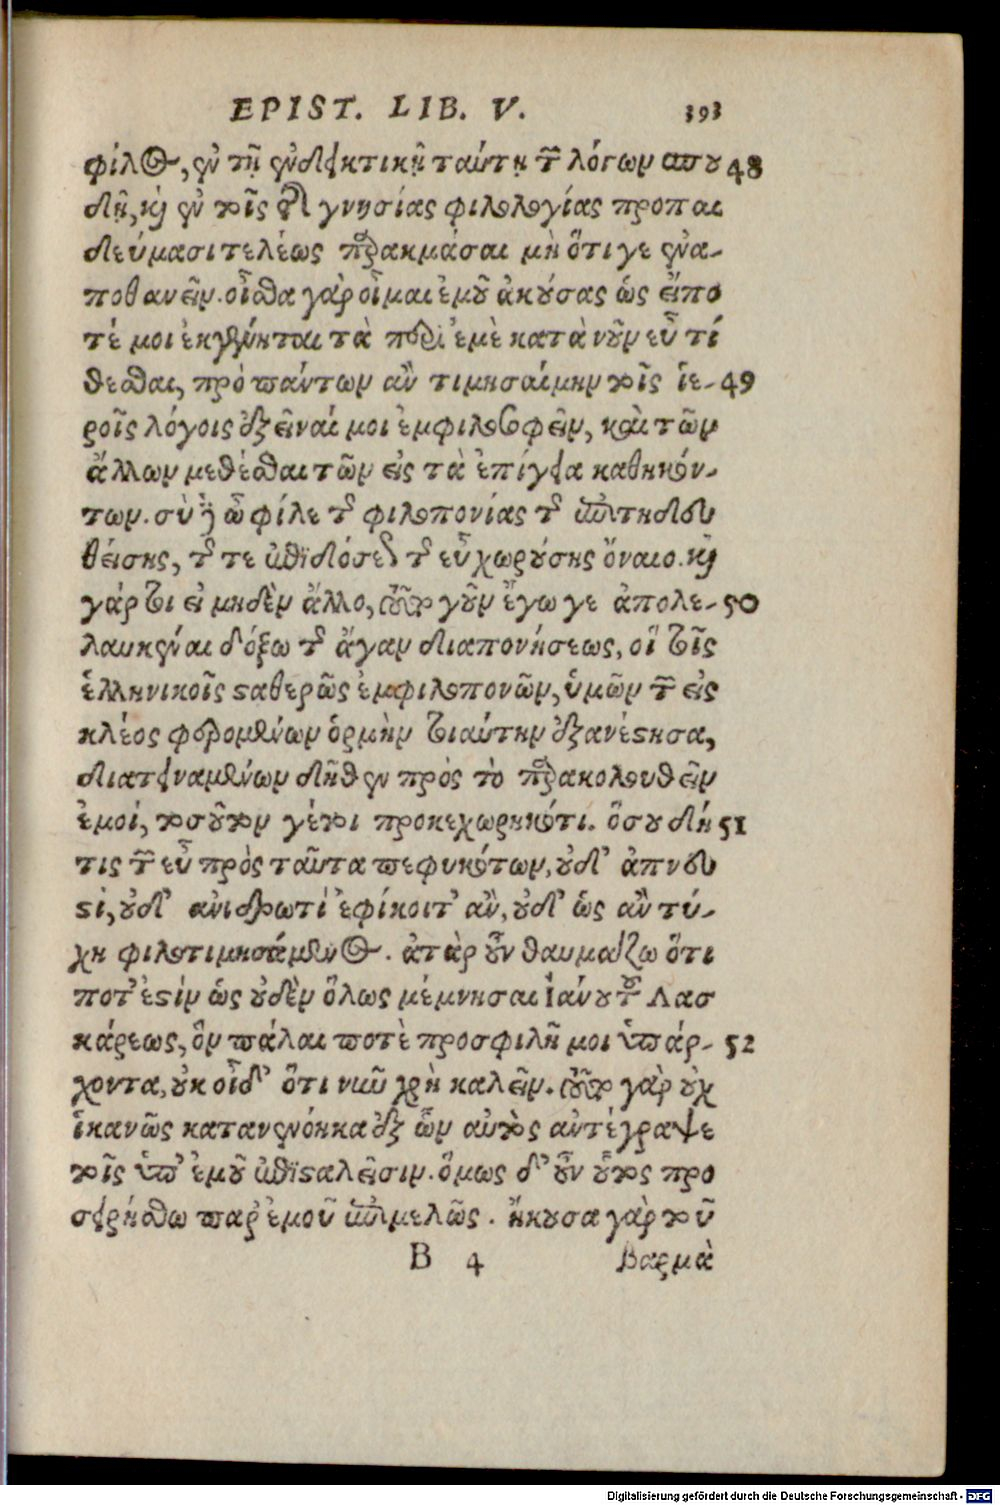 EPIST. LIB. V. 393
φίλος, ἐν τῇ ἐνδεκτικῇ ταύτῃ τῶν λόγων σπου 48
δῇ, καὶ ἐν τοῖς τῆς γνησίας φιλολογίας προπαι
δεύμασι τελέως παρακμάσαι μὴ ὅτι γε ἐνα-
ποθανεῖν. οἶσθα γὰρ οἶμαι ἐμοῦ ἀκούσας ὡς εἴπο
τέ μοι ἐκγένηται τὰ περὶ ἐμὲ κατὰ νοῦν εὖ τί
θεσθαι, πρὸ πάντων ἂν τιμησαίμην τοῖς ἱε- 49
ροῖς λόγοις ἐξεῖναί μοι ἐμφιλοσοφεῖν, καὶ τῶν
ἄλλων μεθέσθαι τῶν εἰς τὰ ἐπίγεια καθηκόν-
των. σὺ δὲ ὦ φίλε τῆς φιλοπονίας τῆς ἐπιτηδευ
θείσης, τῆς τε ἐπιδόσεως τῆς εὖ χωρούσης ὄναιο. καὶ
γάρ τοι εἰ μηδὲν ἄλλο, τοῦτο γοῦν ἔγωγε ἀπολε- 50
λαυκέναι δόξω τῆς ἄγαν διαπονήσεως, οἵ τοῖς
ἑλληνικοῖς σταθερῶς ἐμφιλοπονῶν, ὑμῶν τῶν εἰς
κλέος φερομένων ὁρμὴν τοιαύτην ἐξανέστησα,
διατειναμένων δῆθεν πρὸς τὸ παρακολουθεῖν
ἐμοί, τοσοῦτον γέ τοι προκεχωρηκότι. ὅσου δή 51
τις τῶν εὖ πρὸς ταῦτα πεφυκότων, οὐδ' ἀπνευ
στί, οὐδ' ἀνιδρωτὶ ἐφίκοιτ' ἂν, οὐδ' ὡς ἂν τύ-
χῃ φιλοτιμησάμενος. ἀτὰρ οὖν θαυμάζω ὅτι
ποτ' ἐστὶν ὡς οὐδὲν ὅλως μέμνησαι Ἰάνου τοῦ Λασ
κάρεως, ὃν πάλαι ποτὲ προσφιλῆ μοι ὑπάρ- 52
χοντα, οὐκ οἶδ' ὅτι νῦν χρὴ καλεῖν. τοῦτο γὰρ οὐχ
ἱκανῶς κατανενόηκα ἐξ ὧν αὐτὸς ἀντέγραψε
τοῖς ὑπ' ἐμοῦ ἐπισταλεῖσιν. ὅμως δ' οὖν οὗτος προ
σειρήσθω παρ' ἐμοῦ ἐπιμελῶς. ἤκουσα γὰρ τοῦ
B 4 βαρμὰ
Digitalisierung gefördert durch die Deutsche Forschungsgemeinschaft - DFG